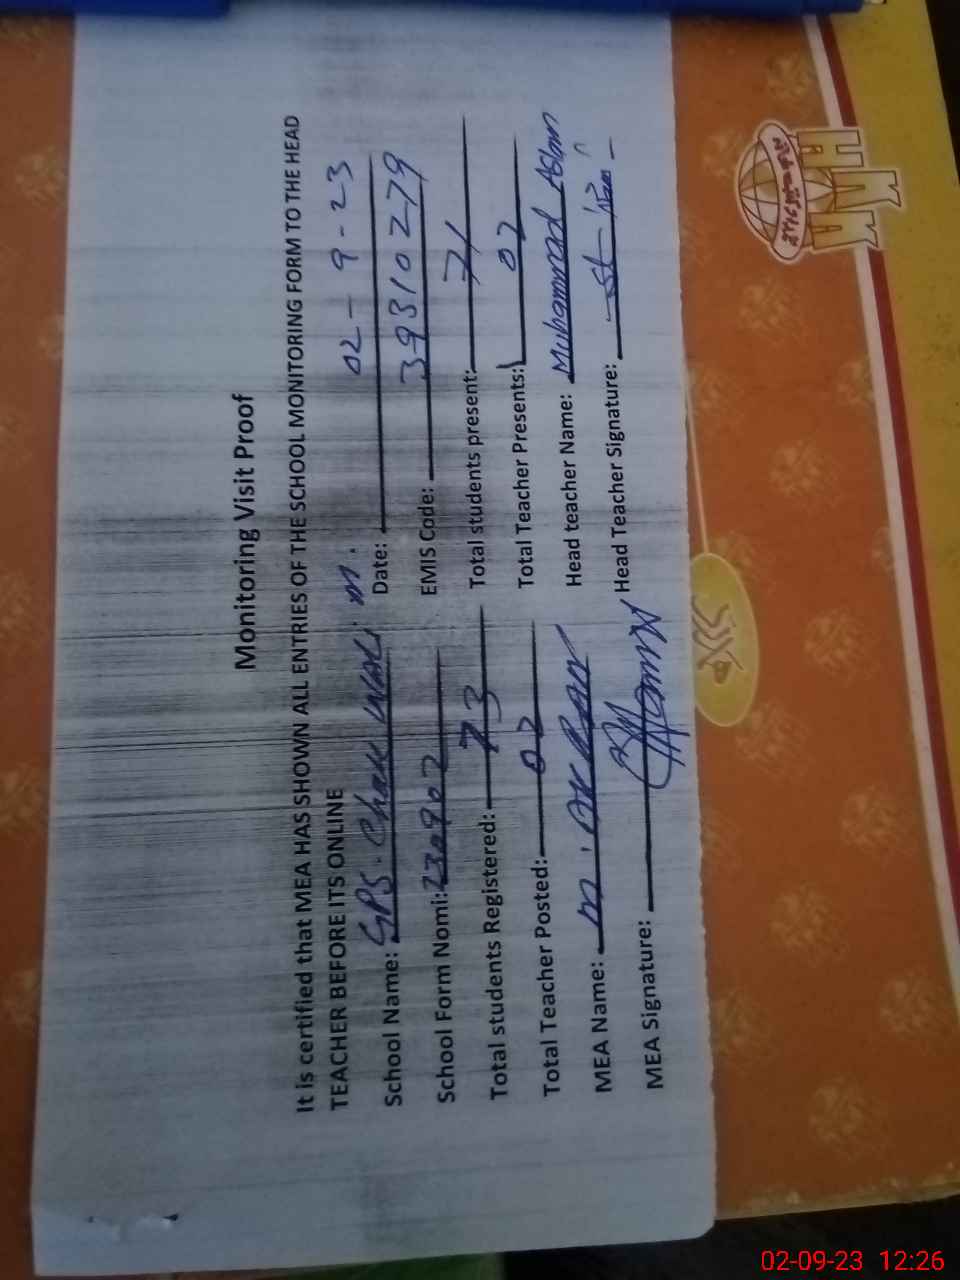 Monitoring Visit Proof
It is certified that MEA HAS SHOWN ALL ENTRIES OF THE SCHOOL MONITORING FORM TO THE HEAD
TEACHER BEFORE ITS ONLINE
02 - 9 - 23
School Name: GPS. Chak Wali m. Date:
School Form Nomi: 230902 EMIS Code: 39310279
Total students Registered: 73 Total students present: 71
Total Teacher Posted: 02 Total Teacher Presents: 02
MEA Name: m. Head teacher Name: Muhammad Aslam
MEA Signature: Head Teacher Signature:
HKK
02-09-23 12:26